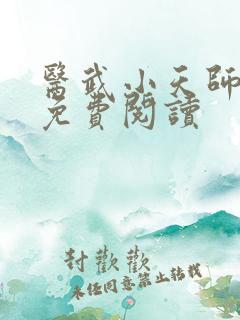 醫武小天師
免費閱讀
封歡歡
未經同意禁止轉載